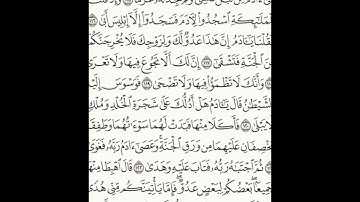 لِلْمَلَٰٓئِكَةِ ٱسْجُدُوا۟ لِـَٔادَمَ فَسَجَدُوٓا۟ إِلَّآ إِبْلِيسَ أَبَىٰ
فَقُلْنَا يَٰٓـَٔادَمُ إِنَّ هَٰذَا عَدُوٌّ لَّكَ وَلِزَوْجِكَ فَلَا يُخْرِجَنَّكُمَا
مِنَ ٱلْجَنَّةِ فَتَشْقَىٰٓ ١١٧ إِنَّ لَكَ أَلَّا تَجُوعَ فِيهَا وَلَا تَعْرَىٰ
وَأَنَّكَ لَا تَظْمَؤُا۟ فِيهَا وَلَا تَضْحَىٰ ١١٩ فَوَسْوَسَ إِلَيْهِ
ٱلشَّيْطَٰنُ قَالَ يَٰٓـَٔادَمُ هَلْ أَدُلُّكَ عَلَىٰ شَجَرَةِ ٱلْخُلْدِ وَمُلْكٍ
لَّا يَبْلَىٰ ١٢٠ فَأَكَلَا مِنْهَا فَبَدَتْ لَهُمَا سَوْءَٰتُهُمَا وَطَفِقَا
يَخْصِفَانِ عَلَيْهِمَا مِن وَرَقِ ٱلْجَنَّةِ وَعَصَىٰٓ ءَادَمُ رَبَّهُۥ فَغَوَىٰ
١٢١ ثُمَّ ٱجْتَبَٰهُ رَبُّهُۥ فَتَابَ عَلَيْهِ وَهَدَىٰ ١٢٢ قَالَ ٱهْبِطَا مِنْهَا
جَمِيعًۢا بَعْضُكُمْ لِبَعْضٍ عَدُوٌّ فَإِمَّا يَأْتِيَنَّكُم مِّنِّى هُدًى